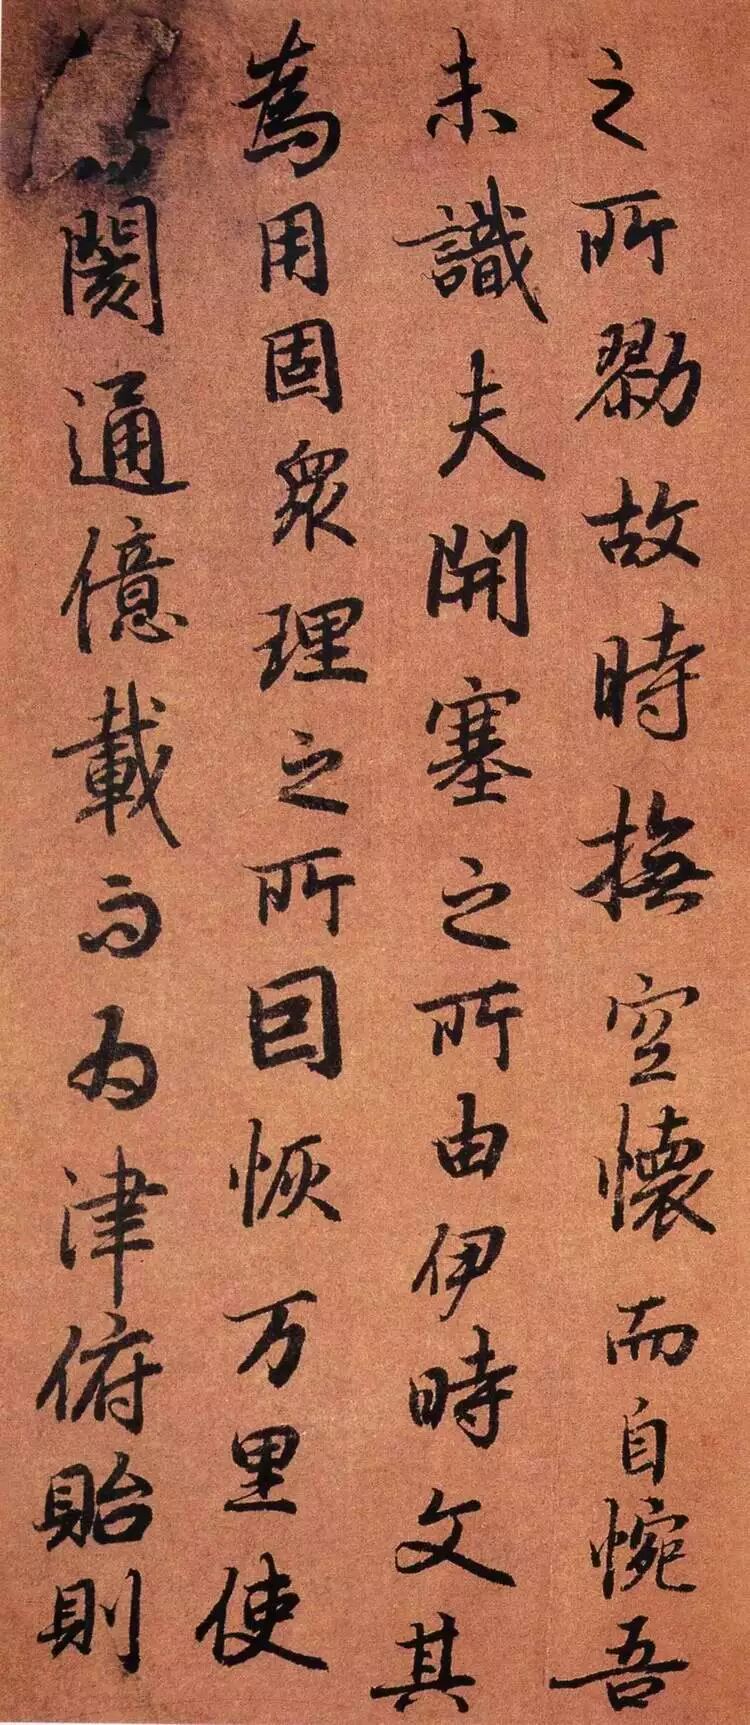 之所勠故時撫空懷而自惋吾
未識夫開塞之所由伊時文其
爲用固眾理之所因恢万里使
閡通億載而为津俯貽則